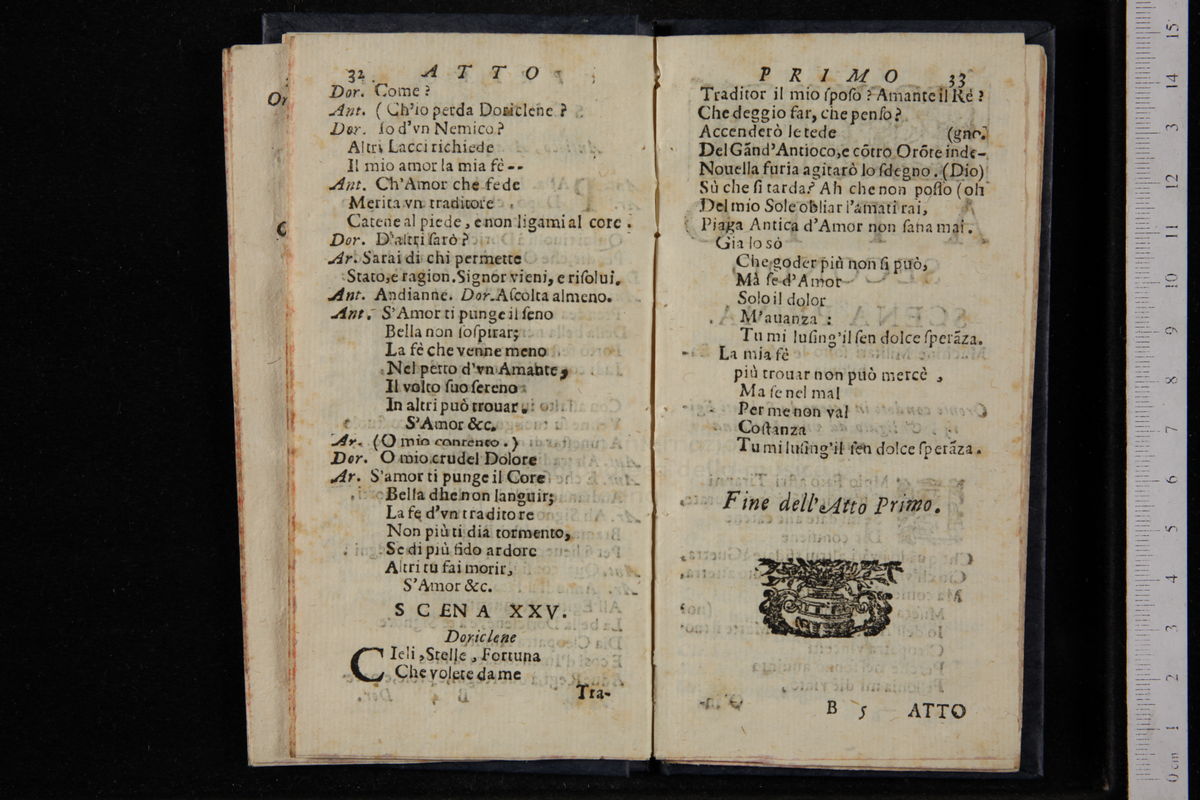 32 ATTO
Dor. Come?
Ant. (Ch'io perda Doriclene?
Dor. Io d'vn Nemico?
Altri Lacci richiede
Il mio amor la mia fè--
Ant. Ch'Amor che fede
Merita vn traditore
Catene al piede, e non ligami al core.
Dor. D'altri sarò?
Ar. Sarai di chi permette
Stato, e ragion. Signor vieni, e risolui.
Ant. Andianne. Dor. Ascolta almeno.
Ant. S'Amor ti punge il seno
Bella non sospirar;
La fè che venne meno
Nel petto d'vn Amante,
Il volto suo sereno
In altri può trouar.
S'Amor &c.
Ar. (O mio contento.)
Dor. O mio crudel Dolore
Ar. S'amor ti punge il Core
Bella dhe non languir;
La fe d'vn traditore
Non più ti dia tormento,
Se di più fido ardore
Altri tu fai morir,
S'Amor &c.
SCENA XXV.
Doriclene
CIeli, Stelle, Fortuna
Che volete da me
Tra-
PRIMO 33
Traditor il mio sposo? Amante il Rè?
Che deggio far, che penso?
Accenderò le tede (gno.
Del Gãnd'Antioco, e cõtro Orõte inde-
Nouella furia agitarò lo sdegno. (Dio)
Sù che si tarda? Ah che non posso (oh
Del mio Sole obliar l'amati rai,
Piaga Antica d'Amor non sana mai.
Gia lo sò
Che goder più non si può,
Mà se d'Amor
Solo il dolor
M'auanza:
Tu mi lusing'il sen dolce sperãza.
La mia fè
più trouar non può mercè,
Ma se nel mal
Per me non val
Costanza
Tu mi lusing'il sen dolce sperãza.
Fine dell'Atto Primo.
B 5 ATTO